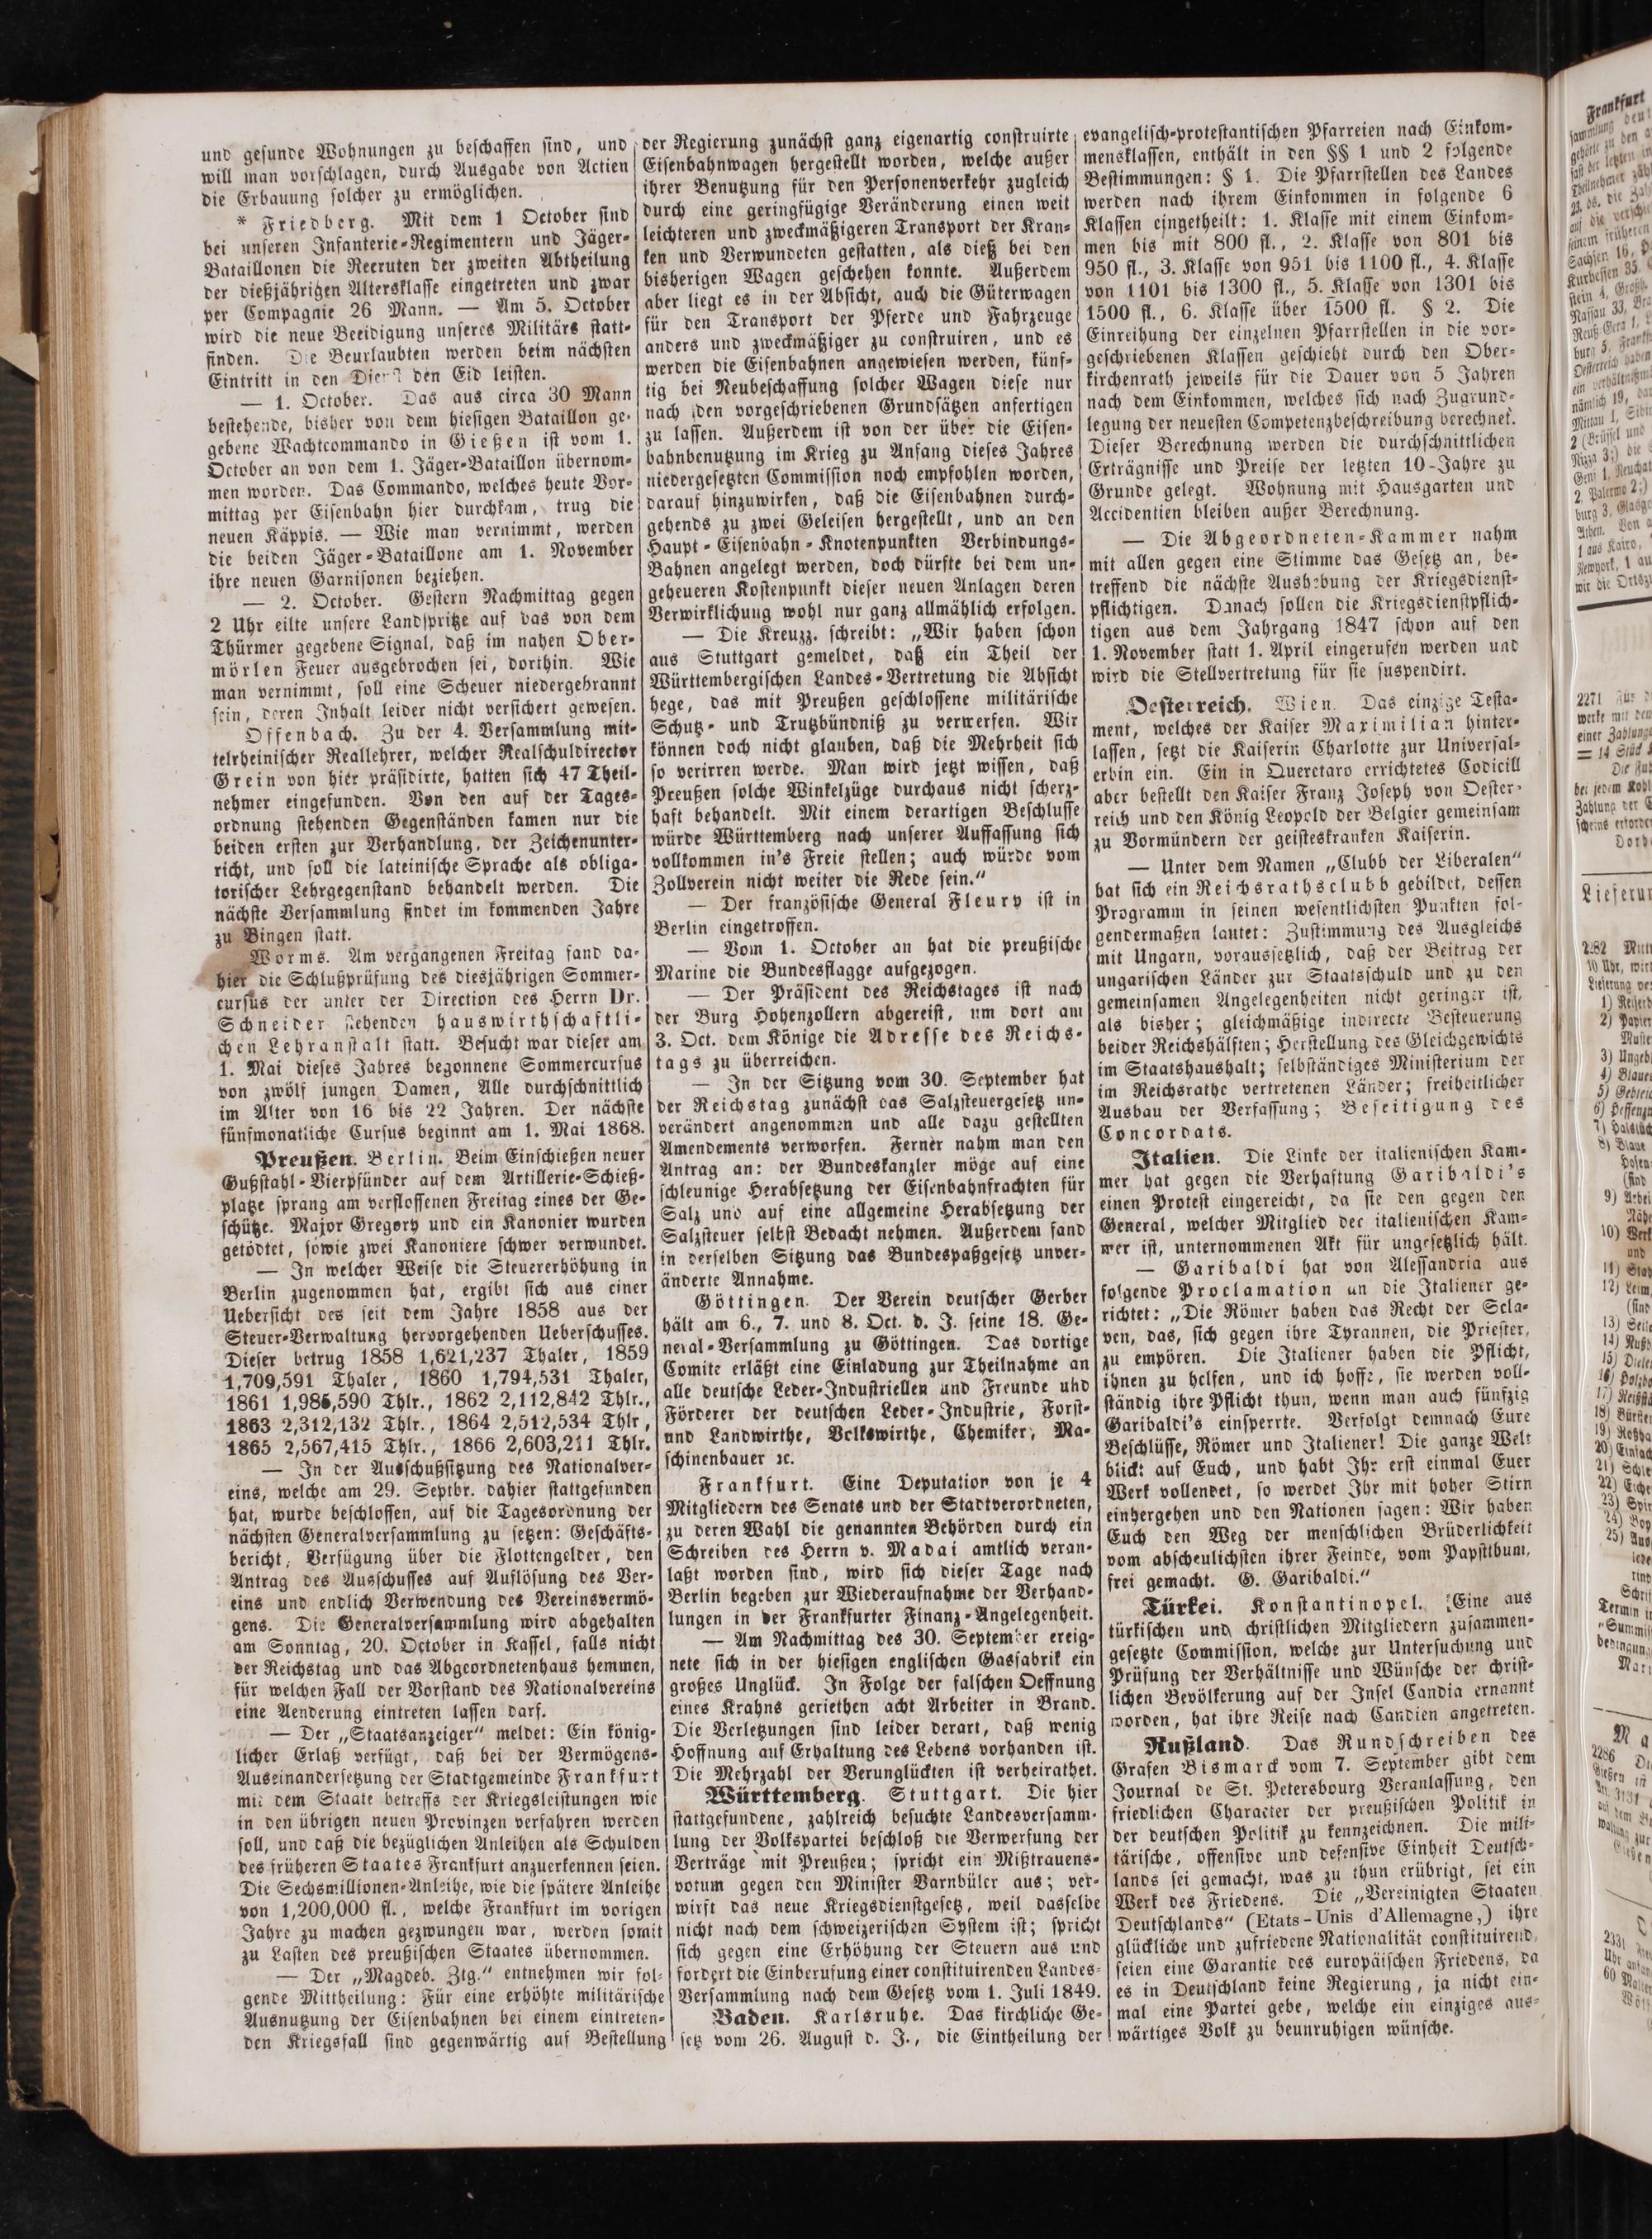 und gesunde Wohnungen zu beschaffen sind, und
will man vorschlagen, durch Ausgabe von Actien
die Erbauung solcher zu ermöglichen.
* Friedberg. Mit dem 1 October sind
bei unseren Infanterie-Regimentern und Jäger-
Bataillonen die Recruten der zweiten Abtheilung
der dießjährigen Altersklasse eingetreten und zwar
per Compagnie 26 Mann. — Am 5. October
wird die neue Beeidigung unseres Militärs statt-
finden. Die Beurlaubten werden beim nächsten
Eintritt in den Dienst den Eid leisten.
— 1. October. Das aus circa 30 Mann
bestehende, bisher von dem hiesigen Bataillon ge-
gebene Wachtcommando in Gießen ist vom 1.
October an von dem 1. Jäger-Bataillon übernom-
men worden. Das Commando, welches heute Vor-
mittag per Eisenbahn hier durchkam, trug die
neuen Käppis. — Wie man vernimmt, werden
die beiden Jäger-Bataillone am 1. November
ihre neuen Garnisonen beziehen.
— 2. October. Gestern Nachmittag gegen
2 Uhr eilte unsere Landspritze auf das von dem
Thürmer gegebene Signal, daß im nahen Ober-
mörlen Feuer ausgebrochen sei, dorthin. Wie
man vernimmt, soll eine Scheuer niedergebrannt
sein, deren Inhalt leider nicht versichert gewesen.
Offenbach. Zu der 4. Versammlung mit-
telrheinischer Reallehrer, welcher Realschuldirector
Grein von hier präsidirte, hatten sich 47 Theil-
nehmer eingefunden. Von den auf der Tages-
ordnung stehenden Gegenständen kamen nur die
beiden ersten zur Verhandlung, der Zeichenunter-
richt, und soll die lateinische Sprache als obliga-
torischer Lehrgegenstand behandelt werden. Die
nächste Versammlung findet im kommenden Jahre
zu Bingen statt.
Worms. Am vergangenen Freitag fand da-
hier die Schlußprüfung des diesjährigen Sommer-
cursus der unter der Direction des Herrn Dr.
Schneider stehenden hauswirthschaftli-
chen Lehranstalt statt. Besucht war dieser am
1. Mai dieses Jahres begonnene Sommercursus
von zwölf jungen Damen, Alle durchschnittlich
im Alter von 16 bis 22 Jahren. Der nächste
fünfmonatliche Cursus beginnt am 1. Mai 1868.
Preußen. Berlin. Beim Einschießen neuer
Gußstahl-Vierpfünder auf dem Artillerie-Schieß-
platze sprang am verflossenen Freitag eines der Ge-
schütze. Major Gregory und ein Kanonier wurden
getödtet, sowie zwei Kanoniere schwer verwundet.
— In welcher Weise die Steuererhöhung in
Berlin zugenommen hat, ergibt sich aus einer
Uebersicht des seit dem Jahre 1858 aus der
Steuer-Verwaltung hervorgehenden Ueberschusses.
Dieser betrug 1858 1,621,237 Thaler, 1859
1,709,591 Thaler, 1860 1,794,531 Thaler,
1861 1,985,590 Thlr., 1862 2,112,842 Thlr.,
1863 2,312,132 Thlr., 1864 2,512,534 Thlr,
1865 2,567,415 Thlr., 1866 2,603,211 Thlr.
— In der Ausschußsitzung des Nationalver-
eins, welche am 29. Septbr. dahier stattgefunden
hat, wurde beschlossen, auf die Tagesordnung der
nächsten Generalversammlung zu setzen: Geschäfts-
bericht, Verfügung über die Flottengelder, den
Antrag des Ausschusses auf Auflösung des Ver-
eins und endlich Verwendung des Vereinsvermö-
gens. Die Generalversammlung wird abgehalten
am Sonntag, 20. October in Kassel, falls nicht
der Reichstag und das Abgeordnetenhaus hemmen,
für welchen Fall der Vorstand des Nationalvereins
eine Aenderung eintreten lassen darf.
— Der „Staatsanzeiger“ meldet: Ein könig-
licher Erlaß verfügt, daß bei der Vermögens-
Auseinandersetzung der Stadtgemeinde Frankfurt
mit dem Staate betreffs der Kriegsleistungen wie
in den übrigen neuen Provinzen verfahren werden
soll, und daß die bezüglichen Anleihen als Schulden
des früheren Staates Frankfurt anzuerkennen seien.
Die Sechsmillionen-Anleihe, wie die spätere Anleihe
von 1,200,000 fl., welche Frankfurt im vorigen
Jahre zu machen gezwungen war, werden somit
zu Lasten des preußischen Staates übernommen.
— Der „Magdeb. Ztg.“ entnehmen wir fol-
gende Mittheilung: Für eine erhöhte militärische
Ausnutzung der Eisenbahnen bei einem eintreten-
den Kriegsfall sind gegenwärtig auf Bestellung
der Regierung zunächst ganz eigenartig construirte
Eisenbahnwagen hergestellt worden, welche außer
ihrer Benutzung für den Personenverkehr zugleich
durch eine geringfügige Veränderung einen weit
leichteren und zweckmäßigeren Transport der Kran-
ken und Verwundeten gestatten, als dieß bei den
bisherigen Wagen geschehen konnte. Außerdem
aber liegt es in der Absicht, auch die Güterwagen
für den Transport der Pferde und Fahrzeuge
anders und zweckmäßiger zu construiren, und es
werden die Eisenbahnen angewiesen werden, künf-
tig bei Neubeschaffung solcher Wagen diese nur
nach den vorgeschriebenen Grundsätzen anfertigen
zu lassen. Außerdem ist von der über die Eisen-
bahnbenutzung im Krieg zu Anfang dieses Jahres
niedergesetzten Commission noch empfohlen worden,
darauf hinzuwirken, daß die Eisenbahnen durch-
gehends zu zwei Geleisen hergestellt, und an den
Haupt-Eisenbahn-Knotenpunkten Verbindungs-
Bahnen angelegt werden, doch dürfte bei dem un-
geheueren Kostenpunkt dieser neuen Anlagen deren
Verwirklichung wohl nur ganz allmählich erfolgen.
— Die Kreuzz. schreibt: „Wir haben schon
aus Stuttgart gemeldet, daß ein Theil der
Württembergischen Landes-Vertretung die Absicht
hege, das mit Preußen geschlossene militärische
Schutz- und Trutzbündniß zu verwerfen. Wir
können doch nicht glauben, daß die Mehrheit sich
so verirren werde. Man wird jetzt wissen, daß
Preußen solche Winkelzüge durchaus nicht scherz-
haft behandelt. Mit einem derartigen Beschlusse
würde Württemberg nach unserer Auffassung sich
vollkommen in's Freie stellen; auch würde vom
Zollverein nicht weiter die Rede sein.“
— Der französische General Fleury ist in
Berlin eingetroffen.
— Vom 1. October an hat die preußische
Marine die Bundesflagge aufgezogen.
— Der Präsident des Reichstages ist nach
der Burg Hohenzollern abgereist, um dort am
3. Oct. dem Könige die Adresse des Reichs-
tags zu überreichen.
— In der Sitzung vom 30. September hat
der Reichstag zunächst das Salzsteuergesetz un-
verändert angenommen und alle dazu gestellten
Amendements verworfen. Ferner nahm man den
Antrag an: der Bundeskanzler möge auf eine
schleunige Herabsetzung der Eisenbahnfrachten für
Salz und auf eine allgemeine Herabsetzung der
Salzsteuer selbst Bedacht nehmen. Außerdem fand
in derselben Sitzung das Bundespaßgesetz unver-
änderte Annahme.
Göttingen. Der Verein deutscher Gerber
hält am 6., 7. und 8. Oct. d. J. seine 18. Ge-
neral-Versammlung zu Göttingen. Das dortige
Comite erläßt eine Einladung zur Theilnahme an
alle deutsche Leder-Industriellen und Freunde und
Förderer der deutschen Leder-Industrie, Forst-
und Landwirthe, Volkswirthe, Chemiker, Ma-
schinenbauer ꝛc.
Frankfurt. Eine Deputation von je 4
Mitgliedern des Senats und der Stadtverordneten,
zu deren Wahl die genannten Behörden durch ein
Schreiben des Herrn v. Madai amtlich veran-
laßt worden sind, wird sich dieser Tage nach
Berlin begeben zur Wiederaufnahme der Verhand-
lungen in der Frankfurter Finanz-Angelegenheit.
— Am Nachmittag des 30. September ereig-
nete sich in der hiesigen englischen Gasfabrik ein
großes Unglück. In Folge der falschen Oeffnung
eines Krahns geriethen acht Arbeiter in Brand.
Die Verletzungen sind leider derart, daß wenig
Hoffnung auf Erhaltung des Lebens vorhanden ist.
Die Mehrzahl der Verunglückten ist verheirathet.
Württemberg. Stuttgart. Die hier
stattgefundene, zahlreich besuchte Landesversamm-
lung der Volkspartei beschloß die Verwerfung der
Verträge mit Preußen; spricht ein Mißtrauens-
votum gegen den Minister Varnbüler aus; ver-
wirft das neue Kriegsdienstgesetz, weil dasselbe
nicht nach dem schweizerischen System ist; spricht
sich gegen eine Erhöhung der Steuern aus und
fordert die Einberufung einer constituirenden Landes-
Versammlung nach dem Gesetz vom 1. Juli 1849.
Baden. Karlsruhe. Das kirchliche Ge-
setz vom 26. August d. J., die Eintheilung der
evangelisch-protestantischen Pfarreien nach Einkom-
mensklassen, enthält in den §§ 1 und 2 folgende
Bestimmungen: § 1. Die Pfarrstellen des Landes
werden nach ihrem Einkommen in folgende 6
Klassen eingetheilt: 1. Klasse mit einem Einkom-
men bis mit 800 fl., 2. Klasse von 801 bis
950 fl., 3. Klasse von 951 bis 1100 fl., 4. Klasse
von 1101 bis 1300 fl., 5. Klasse von 1301 bis
1500 fl., 6. Klasse über 1500 fl. § 2. Die
Einreihung der einzelnen Pfarrstellen in die vor-
geschriebenen Klassen geschieht durch den Ober-
kirchenrath jeweils für die Dauer von 5 Jahren
nach dem Einkommen, welches sich nach Zugrund-
legung der neuesten Competenzbeschreibung berechnet.
Dieser Berechnung werden die durchschnittlichen
Erträgnisse und Preise der letzten 10-Jahre zu
Grunde gelegt. Wohnung mit Hausgarten und
Accidentien bleiben außer Berechnung.
— Die Abgeordneten-Kammer nahm
mit allen gegen eine Stimme das Gesetz an, be-
treffend die nächste Aushebung der Kriegsdienst-
pflichtigen. Danach sollen die Kriegsdienstpflich-
tigen aus dem Jahrgang 1847 schon auf den
1. November statt 1. April eingerufen werden und
wird die Stellvertretung für sie suspendirt.
Oesterreich. Wien. Das einzige Testa-
ment, welches der Kaiser Maximilian hinter-
lassen, setzt die Kaiserin Charlotte zur Universal-
erbin ein. Ein in Queretaro errichtetes Codicill
aber bestellt den Kaiser Franz Joseph von Oester-
reich und den König Leopold der Belgier gemeinsam
zu Vormündern der geisteskranken Kaiserin.
— Unter dem Namen „Clubb der Liberalen“
hat sich ein Reichsrathsclubb gebildet, dessen
Programm in seinen wesentlichsten Punkten fol-
gendermaßen lautet: Zustimmung des Ausgleichs
mit Ungarn, voraussetzlich, daß der Beitrag der
ungarischen Länder zur Staatsschuld und zu den
gemeinsamen Angelegenheiten nicht geringer ist,
als bisher; gleichmäßige indirecte Besteuerung
beider Reichshälften; Herstellung des Gleichgewichts
im Staatshaushalt; selbständiges Ministerium der
im Reichsrathe vertretenen Länder; freiheitlicher
Ausbau der Verfassung; Beseitigung des
Concordats.
Italien. Die Linke der italienischen Kam-
mer hat gegen die Verhaftung Garibaldi's
einen Protest eingereicht, da sie den gegen den
General, welcher Mitglied der italienischen Kam-
mer ist, unternommenen Akt für ungesetzlich hält.
— Garibaldi hat von Alessandria aus
folgende Proclamation an die Italiener ge-
richtet: „Die Römer haben das Recht der Scla-
ven, das, sich gegen ihre Tyrannen, die Priester,
zu empören. Die Italiener haben die Pflicht,
ihnen zu helfen, und ich hoffe, sie werden voll-
ständig ihre Pflicht thun, wenn man auch fünfzig
Garibaldi's einsperrte. Verfolgt demnach Eure
Beschlüsse, Römer und Italiener! Die ganze Welt
blickt auf Euch, und habt Ihr erst einmal Euer
Werk vollendet, so werdet Ihr mit hoher Stirn
einhergehen und den Nationen sagen: Wir haben
Euch den Weg der menschlichen Brüderlichkeit
vom abscheulichsten ihrer Feinde, vom Papstthum,
frei gemacht. G. Garibaldi.“
Türkei. Konstantinopel. Eine aus
türkischen und christlichen Mitgliedern zusammen-
gesetzte Commission, welche zur Untersuchung und
Prüfung der Verhältnisse und Wünsche der christ-
lichen Bevölkerung auf der Insel Candia ernannt
worden, hat ihre Reise nach Candien angetreten.
Rußland. Das Rundschreiben des
Grafen Bismarck vom 7. September gibt dem
Journal de St. Petersbourg Veranlassung, den
friedlichen Character der preußischen Politik in
der deutschen Politik zu kennzeichnen. Die mili-
tärische, offensive und defensive Einheit Deutsch-
lands sei gemacht, was zu thun erübrigt, sei ein
Werk des Friedens. Die „Vereinigten Staaten
Deutschlands“ (Etats-Unis d'Allemagne,) ihre
glückliche und zufriedene Nationalität constituirend,
seien eine Garantie des europäischen Friedens, da
es in Deutschland keine Regierung, ja nicht ein-
mal eine Partei gebe, welche ein einziges aus-
wärtiges Volk zu beunruhigen wünsche.
Frankfurt